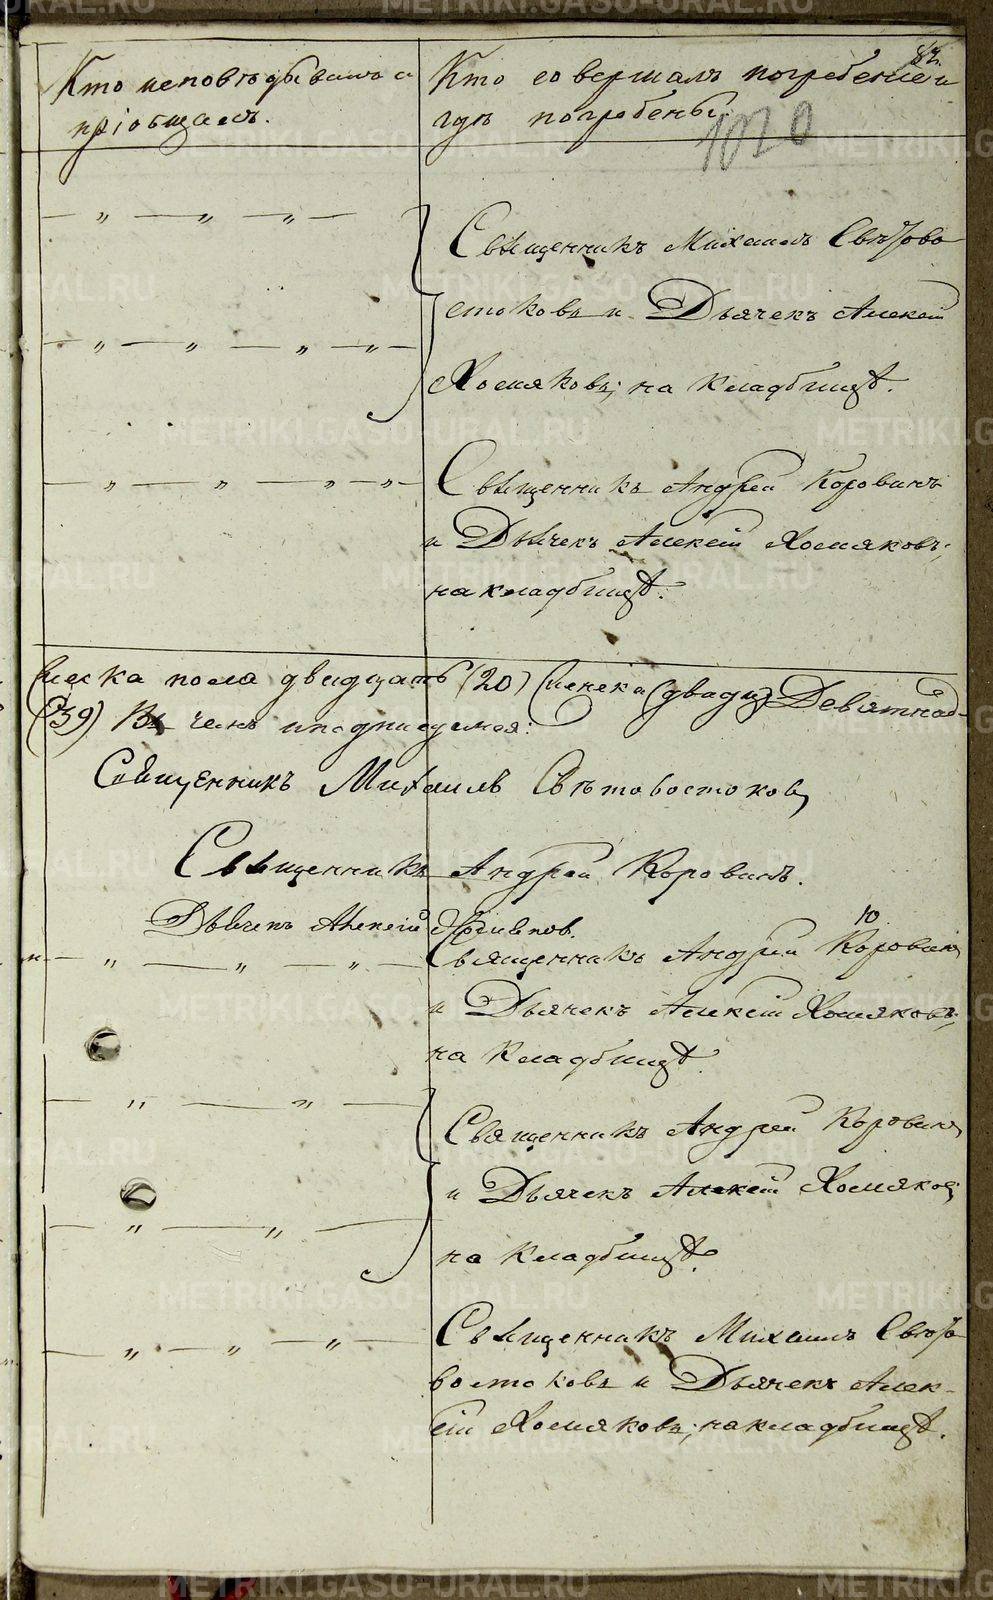 82.
Кто исповѣдывалъ и
пріобщалъ.
Кто совершалъ погребеніе и
гдѣ погребены.
1020
Священникъ Михаилъ Свѣтово
стоковъ и Дьячекъ Алексѣй
Хомяковъ; на кладбищѣ.
Священникъ Андрей Коровинъ
и Дьячекъ Алексѣй Хомяковъ;
на кладбищѣ.
пола двадцать (20) Женска (двадц) Девятнад-
(39) Въ чемъ и подписуемся:
Священникъ Михаилъ Свѣтовостоковъ
Священникъ Андрей Коровинъ.
Дьячекъ Алексѣй Хомяков.
10
Священникъ Андрей Коровинъ
и Дьячекъ Алексѣй Хомяковъ;
на кладбищѣ.
Священникъ Андрей Коровинъ
и Дьячекъ Алексѣй Хомяковъ;
на кладбищѣ.
Священникъ Михаилъ Свѣто
востоковъ и Дьячекъ Алек-
сѣй Хомяковъ; на кладбищѣ.
METRIKI.GASO-URAL.RU